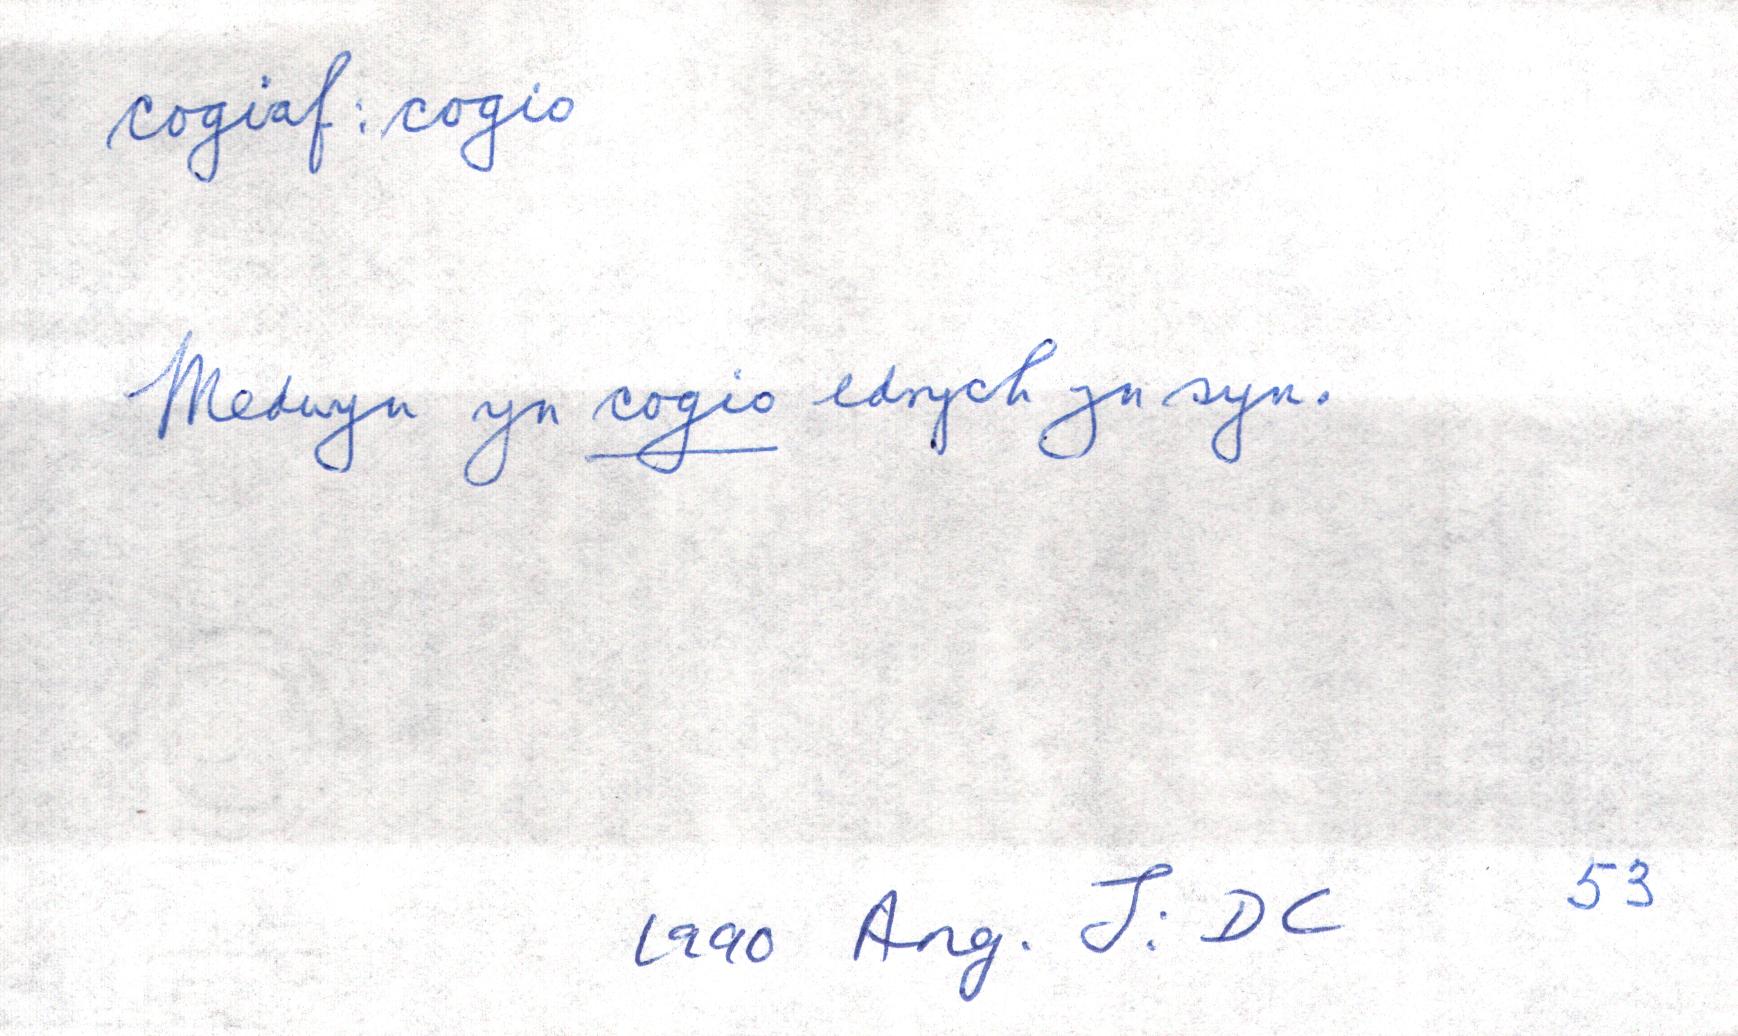 cogiaf: cogio
Medwyn yn cogio edrych yn syn.
1990 Ang. J: DC 53